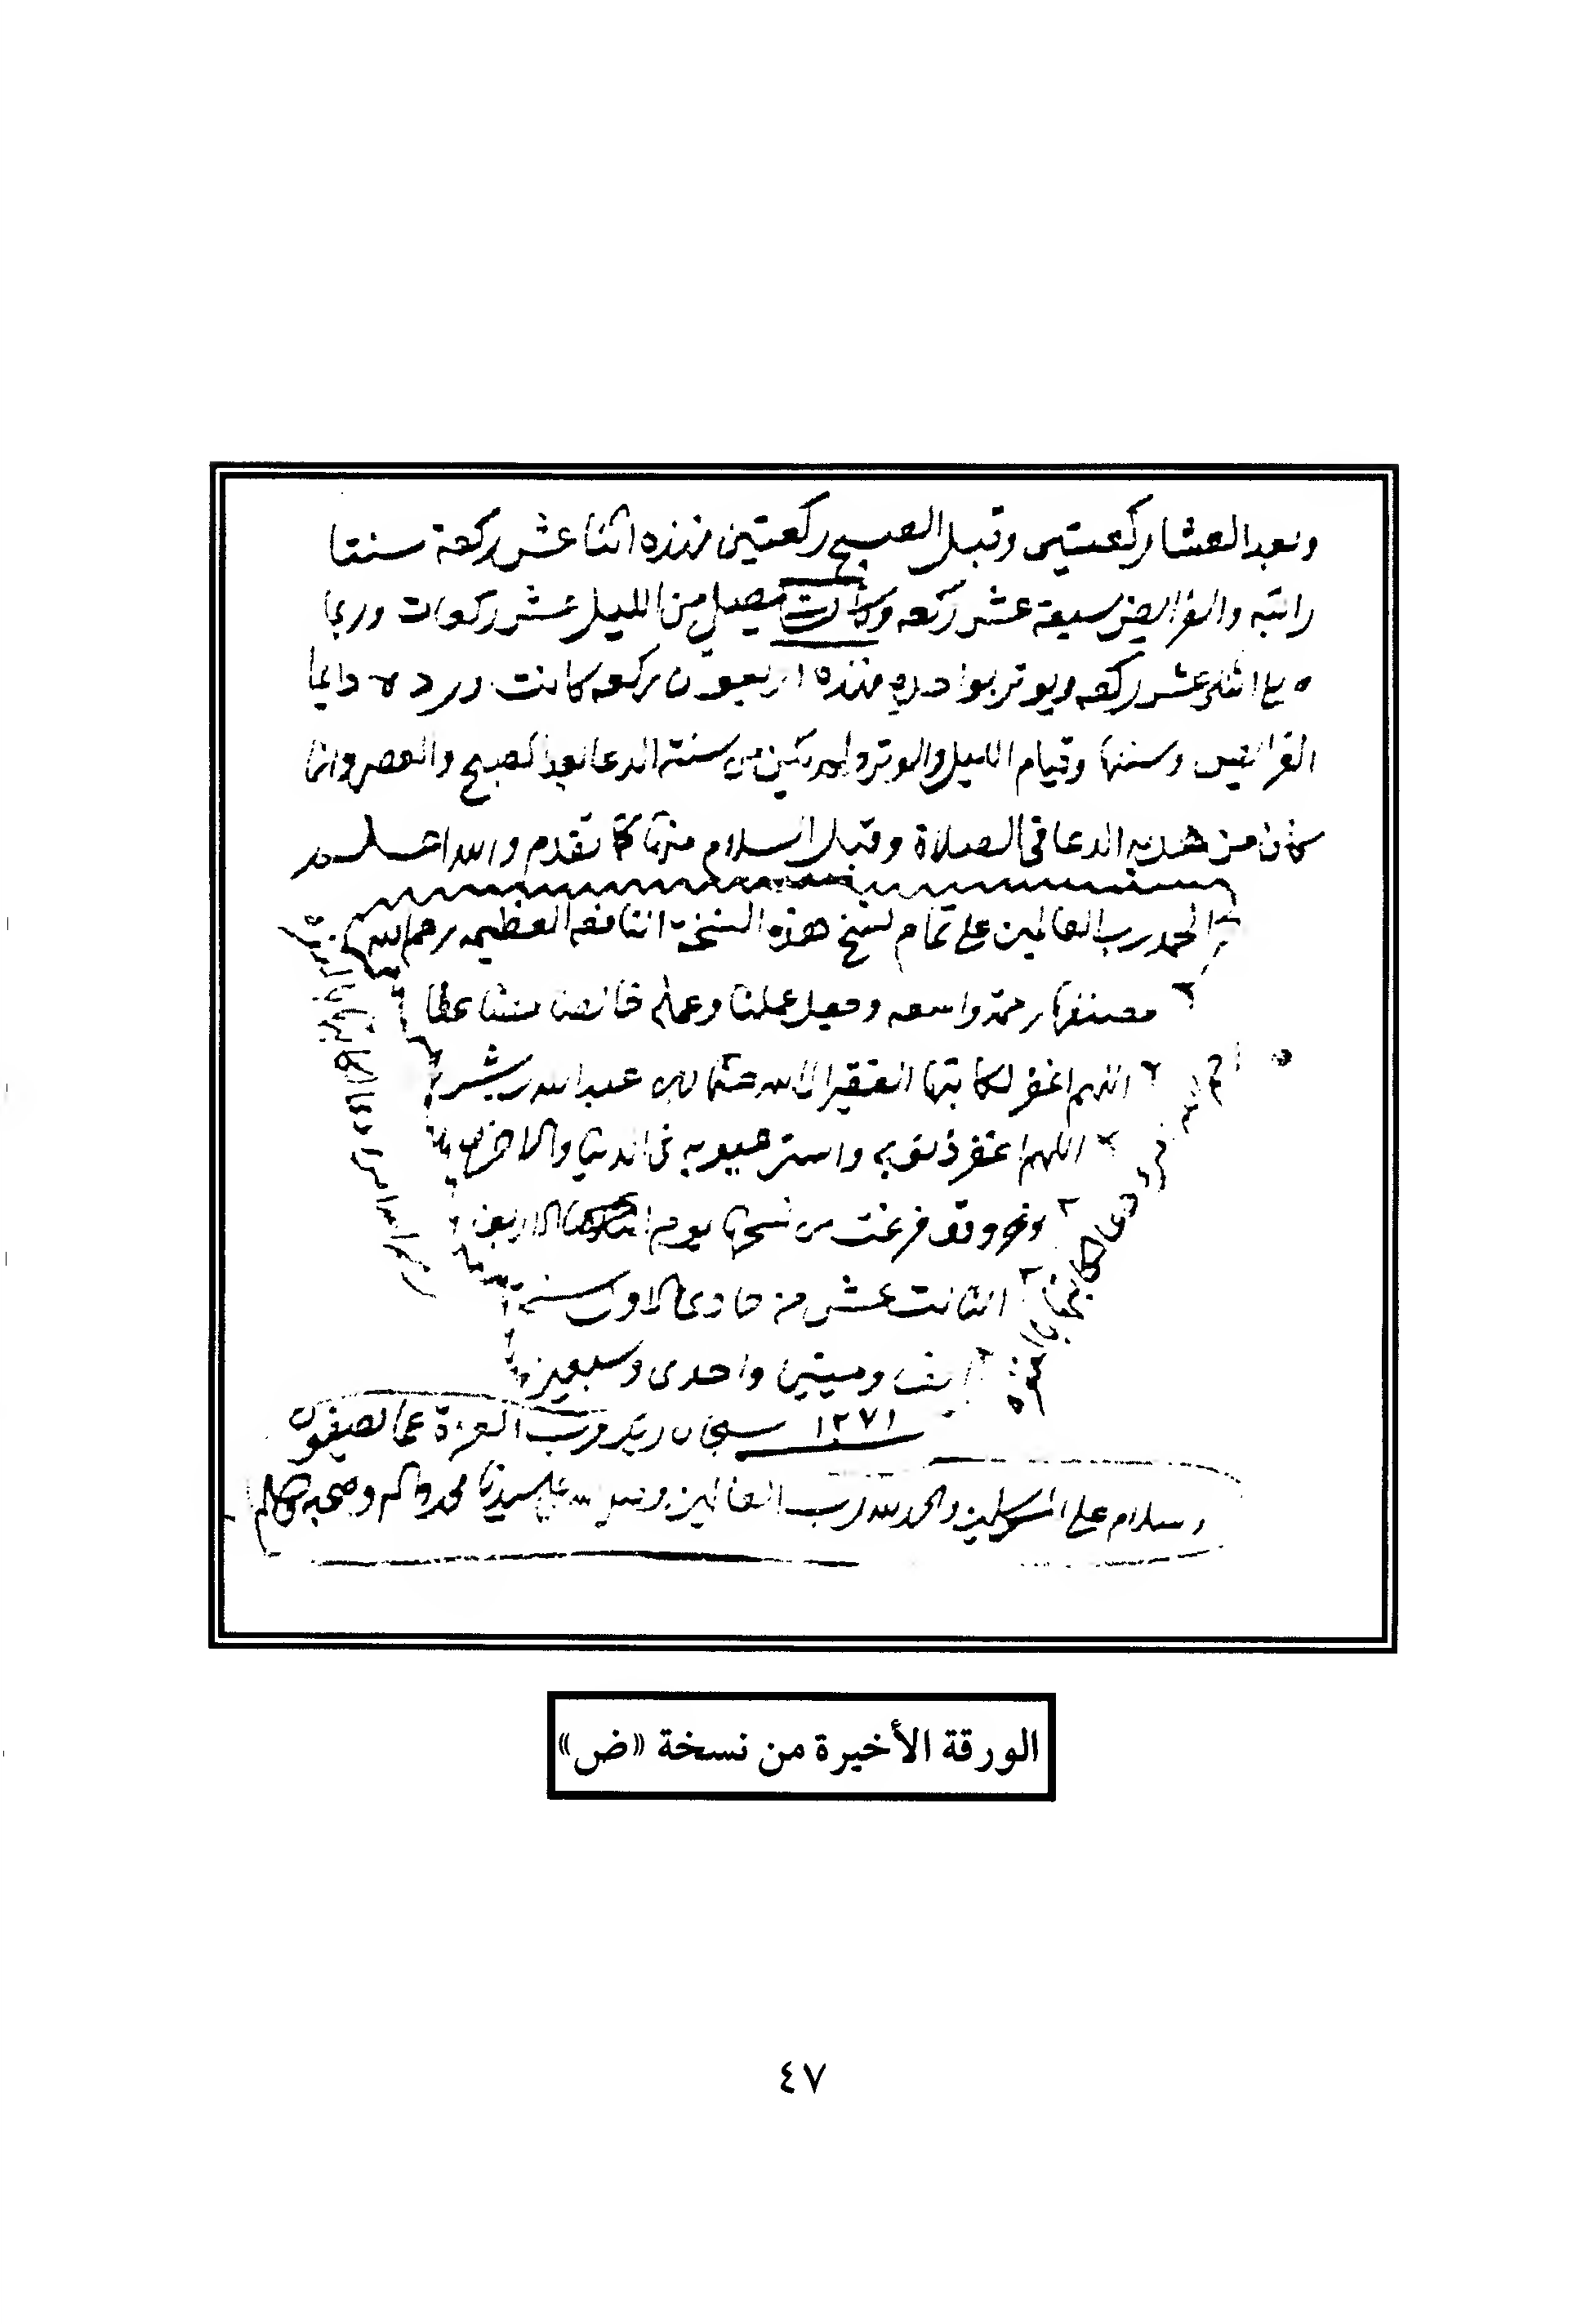 وبعد العشا ركعتين وقبل الصبح ركعتين فهذه اثنا عشر ركعة سننا
راتبه والفرايض سبعة عشر ركعه وكانت يصلي من الليل عشر ركعات وربما
صلى اثنى عشر ركعه ويوتر بواحده فهذه اربعون ركعه كانت ورده دايما
الفرائض وسننها وقيام الليل والوتر ولم يكن من سنته الدعا بعد الصبح والعصر وانما
كان من هديه الدعا في الصلاة وقبل السلام منها كما تقدم والله اعلم
الحمد رب العالمين على تمام نسخ هذه النسخة النافعه العظيمه رحم الله
مصنفها رحمة واسعه وجعل عملنا وعمله خالصا
اللهم اغفر لكاتبها الفقير الى الله عبد الله
اللهم اغفر ذنوبه واستر عيوبه في الدنيا والاخره
وقد فرغت من نسخها يوم الاربعا
الثالث عشر من جمادى الاول سنة
الف وميتين واحدى وسبعين
١٢٧١ سبحان ربك رب العزة عما يصفون
وسلام على المرسلين والحمد لله رب العالمين وصلى الله على سيدنا محمد واله وصحبه وسلم
الورقة الأخيرة من نسخة «ض»
٤٧